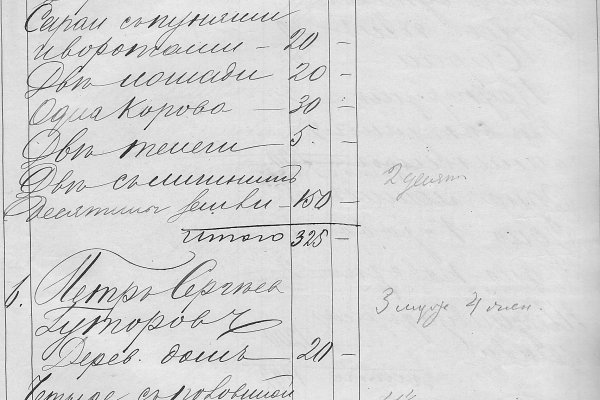 Сараи съ пуняши
и воротами — 20 —
Двѣ лошади 20 —
Одна Корова — 30 —
Двѣ телеги 5. —
Двѣ съ
Десятины земли — 150 — 2 десят
Итого 325 —
6. Петръ Сергѣев
Гуторовъ 3 муж 4 жен.
Дерев. домъ — 20 —